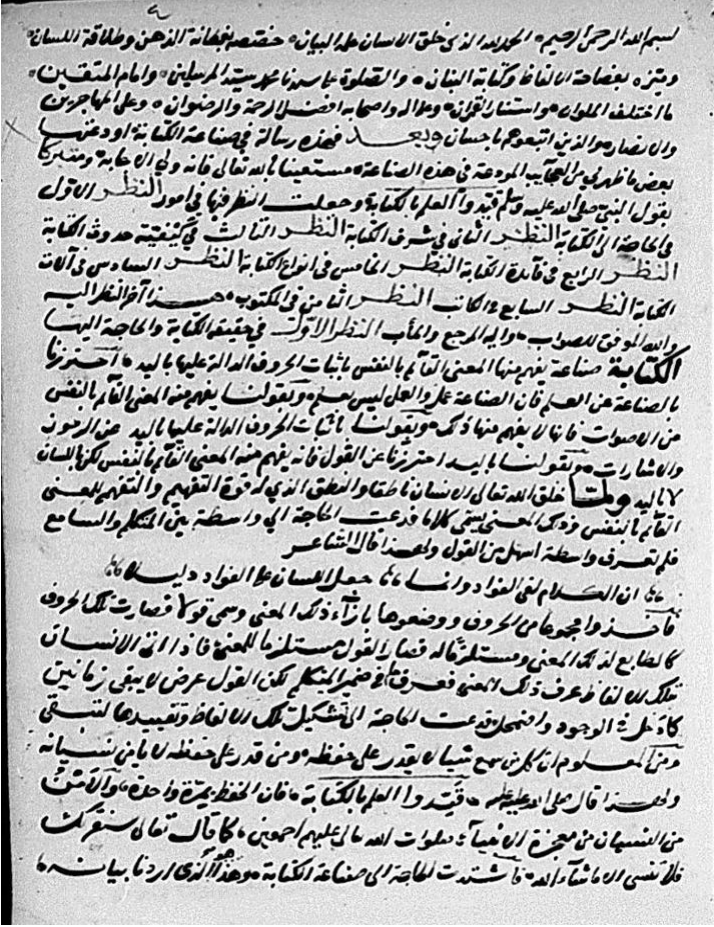 بسم الله الرحمن الرحيم الحمد لله الذى خلق الانسان علمه البيان خصصه بفطانة الذهن وطلاقة اللسان
وميزه بفصاحة الالفاظ وكتابة البنان والصلوة على سيدنا محمد سيد المرسلين وامام المتقين
ما اختلف الملوان واستنار القمران وعلى اله واصحابه افضل الرحمة والرضوان وعلى المهاجرين
والانصار والذين اتبعوهم باحسان وبعد فهذه رسالة فى صناعة الكتابة اودعتها
بعض ما ظهر لى من العجايب المودعة فى هذه الصناعة مستعينا بالله تعالى فانه ولى الاجابة ومتبركا
بقول النبى صلى الله عليه وسلم قيدوا العلم بالكتابة وجعلت النظر فيها فى امور النظر الاول
فى الحاجة الى الكتابة النظر الثانى فى شرف الكتابة النظر الثالث فى كيفية حدوث الكتابة
النظر الرابع فى فائدة الكتابة النظر الخامس فى انواع الكتابة النظر السادس فى آلات
الكتابة النظر السابع فى الكاتب النظر الثامن فى المكتوب هذا آخر النظر اليه
والله الموفق للصواب واليه المرجع والمآب النظر الاول فى حقيقة الكتابة والحاجة اليها
الكتابة صناعة يفهم منها المعنى القائم بالنفس باثبات الحروف الدالة عليها باليد احترزنا
بالصناعة عن العلم فان الصناعة عمل والعمل ليس بعلم وبقولنا يفهم منه المعنى القائم بالنفس
من الاصوات فانها لا يفهم منها ذلك وبقولنا باثبات الحروف الدالة عليها باليد عن الرموز
والاشارات وبقولنا باليد احترزنا عن القول فانه يفهم منه المعنى القائم بالنفس لكن باللسان
لا باليد ولما خلق الله تعالى الانسان ناطقا والنطق الذى له قوة التفهيم والتفهم للمعنى
القائم بالنفس وذلك المعنى يسمى كلاما فدعت الحاجة الى واسطة بين المتكلم والسامع
فلم تعرف واسطة اسهل من القول ولهذا قال الشاعر
ان الكلام لفى الفؤاد وانما جعل اللسان على الفؤاد دليلا
فاخذوا مجموعا من الحروف ووضعوها بازآء ذلك المعنى وسمى قولا فصارت تلك الحروف
كالطابع لذلك المعنى ومستلزما له فصار القول مستلزما للمعنى فاذا اتى الانسان
بتلك الالفاظ عرف ذلك المعنى فعرف ما فى ضمير المتكلم لكن القول عرض لا يبقى زمانين
كما دخل فى الوجود واضمحل فدعت الحاجة الى تشكيل تلك الالفاظ وتقييدها لتبقى
ومن المعلوم ان كل من سمع شيئا لا يقدر على حفظه ومن قدر على حفظه لا يأمن نسيانه
ولهذا قال صلى الله عليه قيدوا العلم بالكتابة فان الحفظ بمرة واحدة والامن
من النسيان من معجزة الانبيآء صلوات الله عليهم اجمعين كما قال تعالى سنقرئك
فلا تنسى الا ما شآء الله فاشتدت الحاجة الى صناعة الكتابة وهذا هو الذى اردنا بيانه